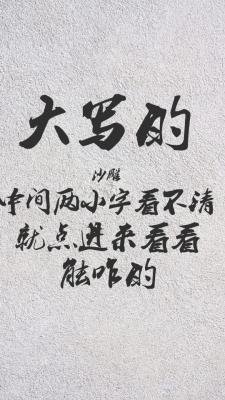 大写的
沙雕
中间两小字看不清
就点进来看看
能咋的